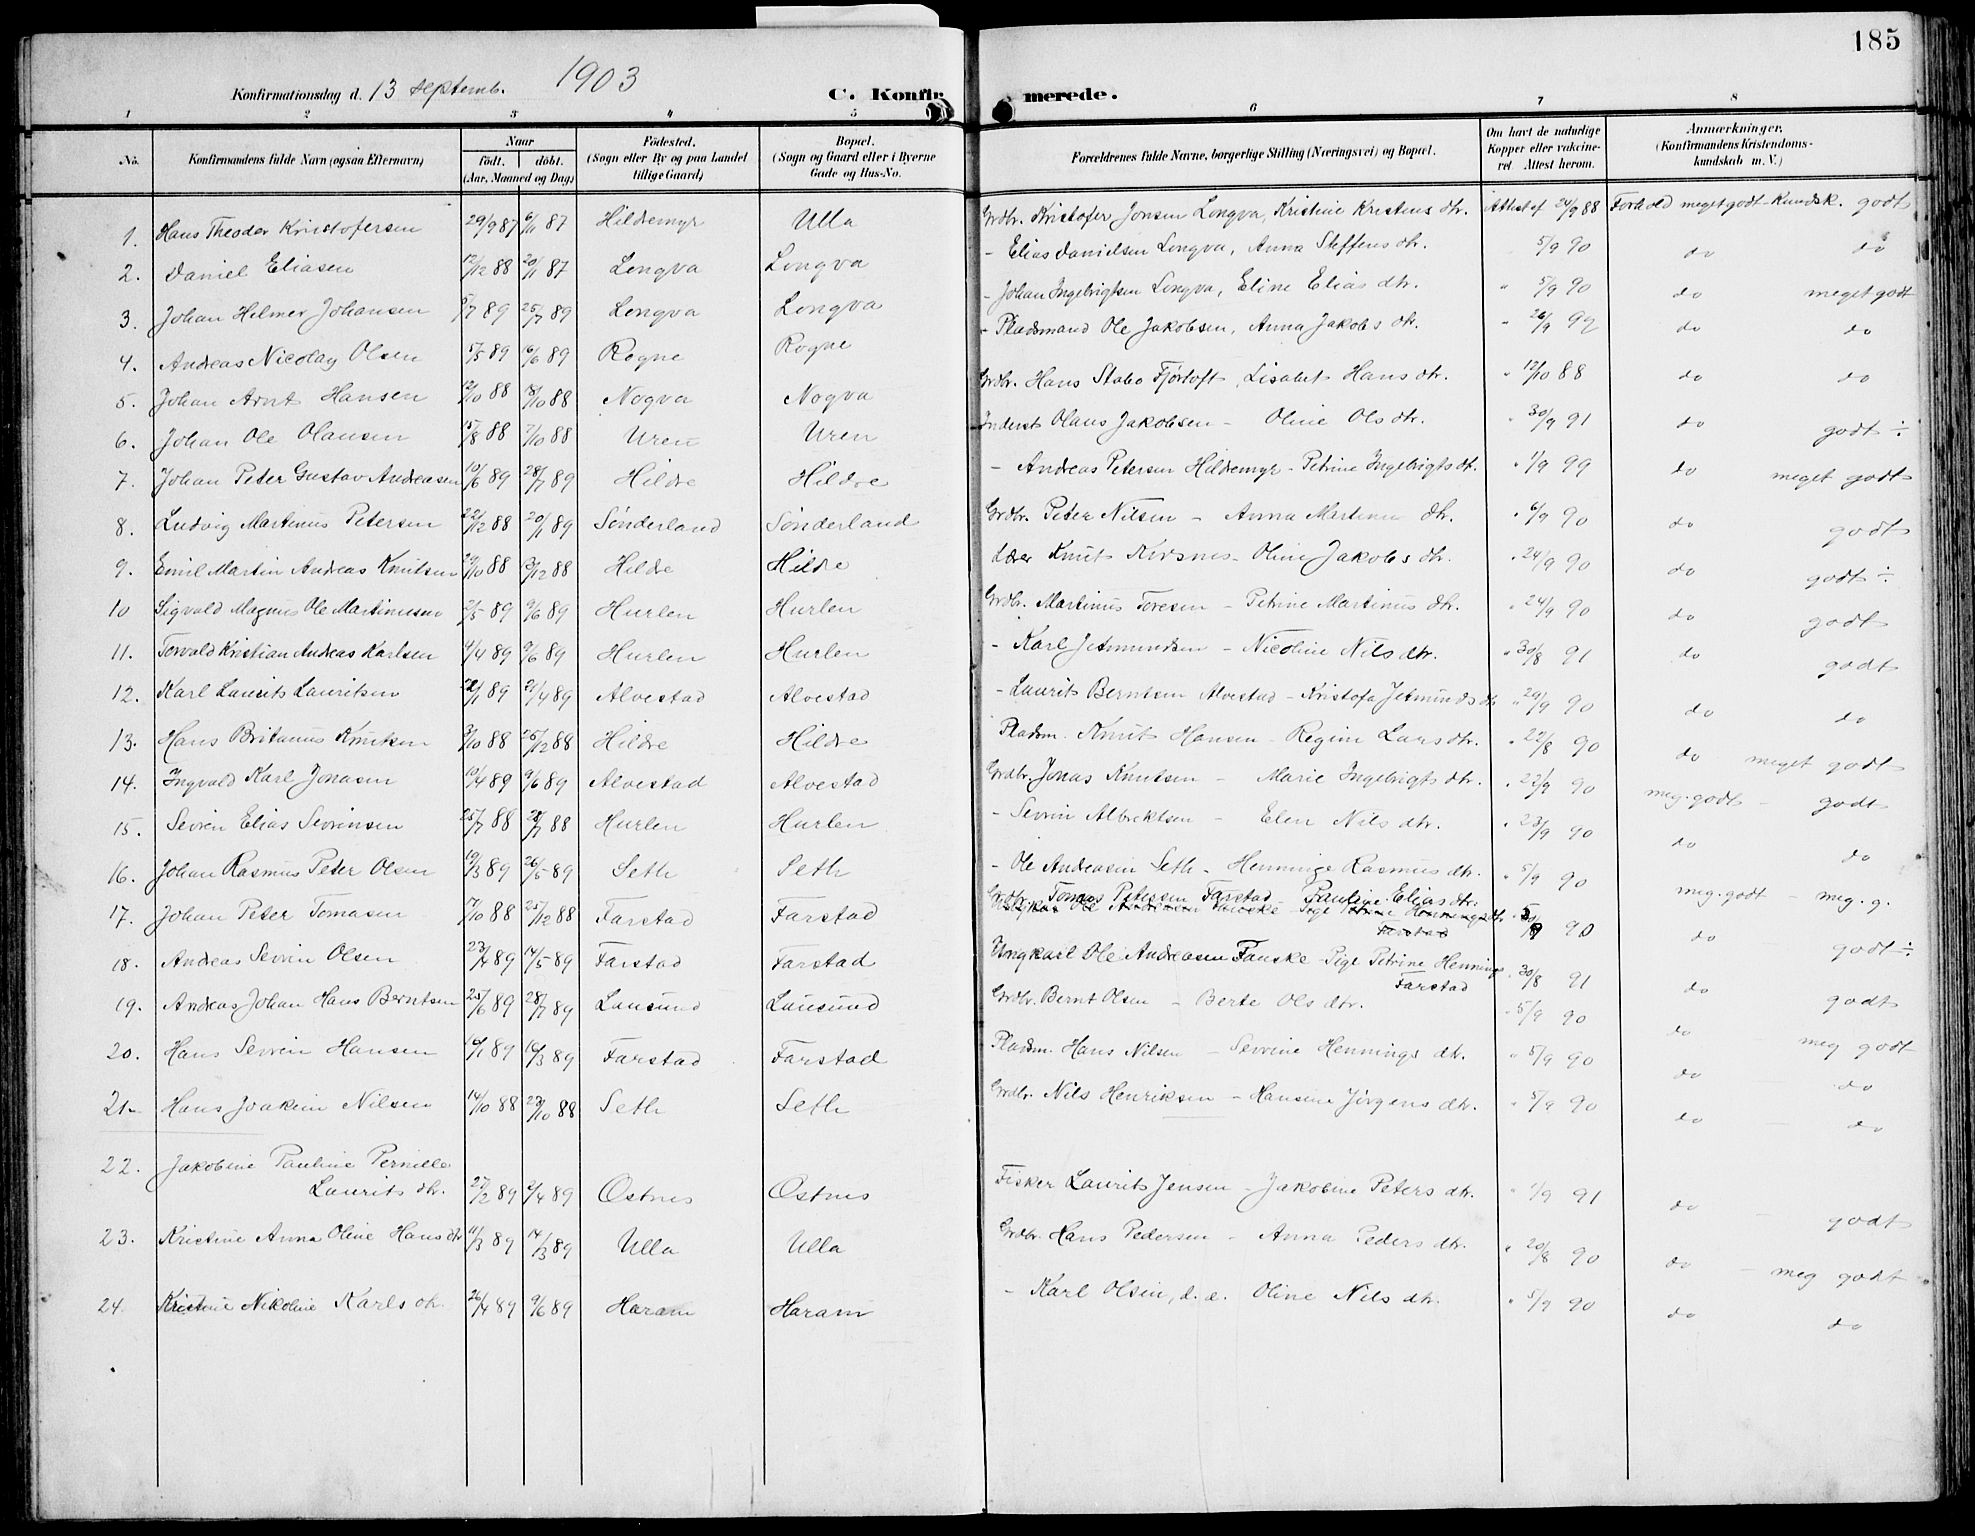 185
Konfirmationsdag d. 13 septemb. 1903
C. Konfirmerede.
1 2 3 4 5 6 7 8
No. Konfirmandens fulde Navn (ogsaa Efternavn) Naar født. døbt. (Aar, Maaned og Dag) Fødested. (Sogn eller By og paa Landet tillige Gaard) Bopæl. (Sogn og Gaard eller i Byerne Gade og Hus-No. Forældrenes fulde Navne, borgerlige Stilling (Næringsvei) og Bopæl. Om havt de naturlige Kopper eller vakcineret. Attest herom. Anmærkninger. (Konfirmandens Kristendomskundskab m. V.)
1. Hans Theodor Kristofersen 29/9 87 6/11 87 Hildremyr Ulla Grdbr. Kristofer Jonsen Longva, Kristine Kristens dtr. Attest af 24/9 88 Forhold meget godt - Kundsk. godt
2. Daniel Eliasen 12/12 88 20/1 87 Longva Longva - Elias Danielsen Longva, Anna Steffens dtr. 5/9 90 do do
3. Johan Hilmer Johansen /7 89 25/7 89 Longva Longva - Johan Ingebrigtsen Longva, Eline Elias dtr. " 5/9 90 do meget godt
4. Andreas Nicolay Olsen 5/5 89 6/6 89 Rogne Rogne - Pladsmand Ole Jakobsen, Anna Jakobs dtr. " 26/9 92 do do
5. Johan Arnt Hansen 12/10 88 18/10 88 Nogva Nogva Grdbr. Hans Stabo Fjørtoft, Lisabet Hans dtr. " 12/10 88 do do
6. Johan Ole Olausen 15/8 88 7/10 88 Uren Uren Inderst Olaus Jakobsen - Oline Ols dtr. " 30/9 91 do godt ÷
7. Johan Peter Gustav Andreasen 10/6 89 28/7 89 Hildre Hildre - Andreas Petersen Hildremyr - Petrine Ingebrigts dt. " 1/9 99 do meget godt
8. Ludvig Martinus Petersen 22/12 88 20/1 89 Sønderland Sønderland Grdbr. Peter Nilsen - Anna Martinus dtr. " 6/9 90 do godt
9. Emil Martin Andreas Knutsen /10 88 /12 88 Hildre Hildre Lærer Knut - Oline Jakobs dtr. " 24/9 90 do godt ÷
10 Sigvald Magnus Ole Martinusen 2/5 89 9/6 89 Hurlen Hurlen Grdbr. Martinus Toresen - Petrine Martinus dtr. " 24/9 90 do godt
11. Torvald Kristian Andreas Karlsen 4/4 89 9/6 89 Hurlen Hurlen - Karl Jetmundsen - Nicoline Nils dtr. " 30/8 91 do godt
12. Karl Laurits Lauritsen /1 89 /4 89 Alvestad Alvestad - Laurits Berntsen Alvestad - Kristofa Jetmunds dtr " 29/9 90 do do
13. Hans Britanus Knutsen /10 88 26/12 88 Hildre Hildre Pladsm. Knut Hansen - Regine Lars dtr. " 22/8 90 do meget godt
14. Ingvald Karl Jonasen 10/4 89 9/6 89 Alvestad Alvestad Grdbr. Jonas Knutsen - Marie Ingebrigts dtr. " 22/9 90 meg. godt - godt
15. Sevrin Elias Sevrinsen 25/7 88 /7 88 Hurlen Hurlen - Sevrin Albrektsen - Elen Nils dtr. " 23/9 90 do do
16. Johan Rasmus Peter Olsen 19/3 89 26/5 89 Seth Seth - Ole Andreasen Seth - Henninge Rasmus dtr. " 5/9 90 meg. godt - meg. g.
17. Johan Peter Tomasen 7/10 88 25/12 88 Farstad Farstad Grdbr. Tomas Petersen Farstad Pauline Elias dtr. 5/9 90 do godt ÷
18. Andreas Sevrin Olsen 23/4 89 14/5 89 Farstad Farstad Ungkarl Ole Andreasen Fauske - Pige Petrine Hennings Farstad 30/8 91 do godt
19. Andreas Johan Hans Berntsen 25/6 89 28/7 89 Lausund Lausund Grdbr. Bernt Olsen - Berte Ols dtr. " 5/9 90 do - meg godt
20. Hans Sevrin Hansen /1 89 /3 89 Farstad Farstad Pladsm. Hans Nilsen - Sevrine Hennings dtr. " 5/9 90 do do
21. Hans Joakim Nilsen 14/10 88 /10 88 Seth Seth Grdbr. Nils Henriksen - Hansine Jörgens dtr. " 5/9 90 do - do
22. Jakobine Pauline Pernille Laurits dtr. 27/2 89 /4 89 Ostnes Ostnes Fisker Laurits Jensen - Jakobine Peters dtr. " 1/9 91 do - godt
23. Kristine Anna Oline Hans dtr 11/3 89 14/3 89 Ulla Ulla Grdbr. Hans Pedersen - Anna Peders dtr. " 20/8 90 do - meg godt
24. Kristine Nikoline Karls dtr. 26/4 89 9/6 89 Haram Haram - Karl Olsen, d. e. Oline Nils dtr. " 5/9 90 do do